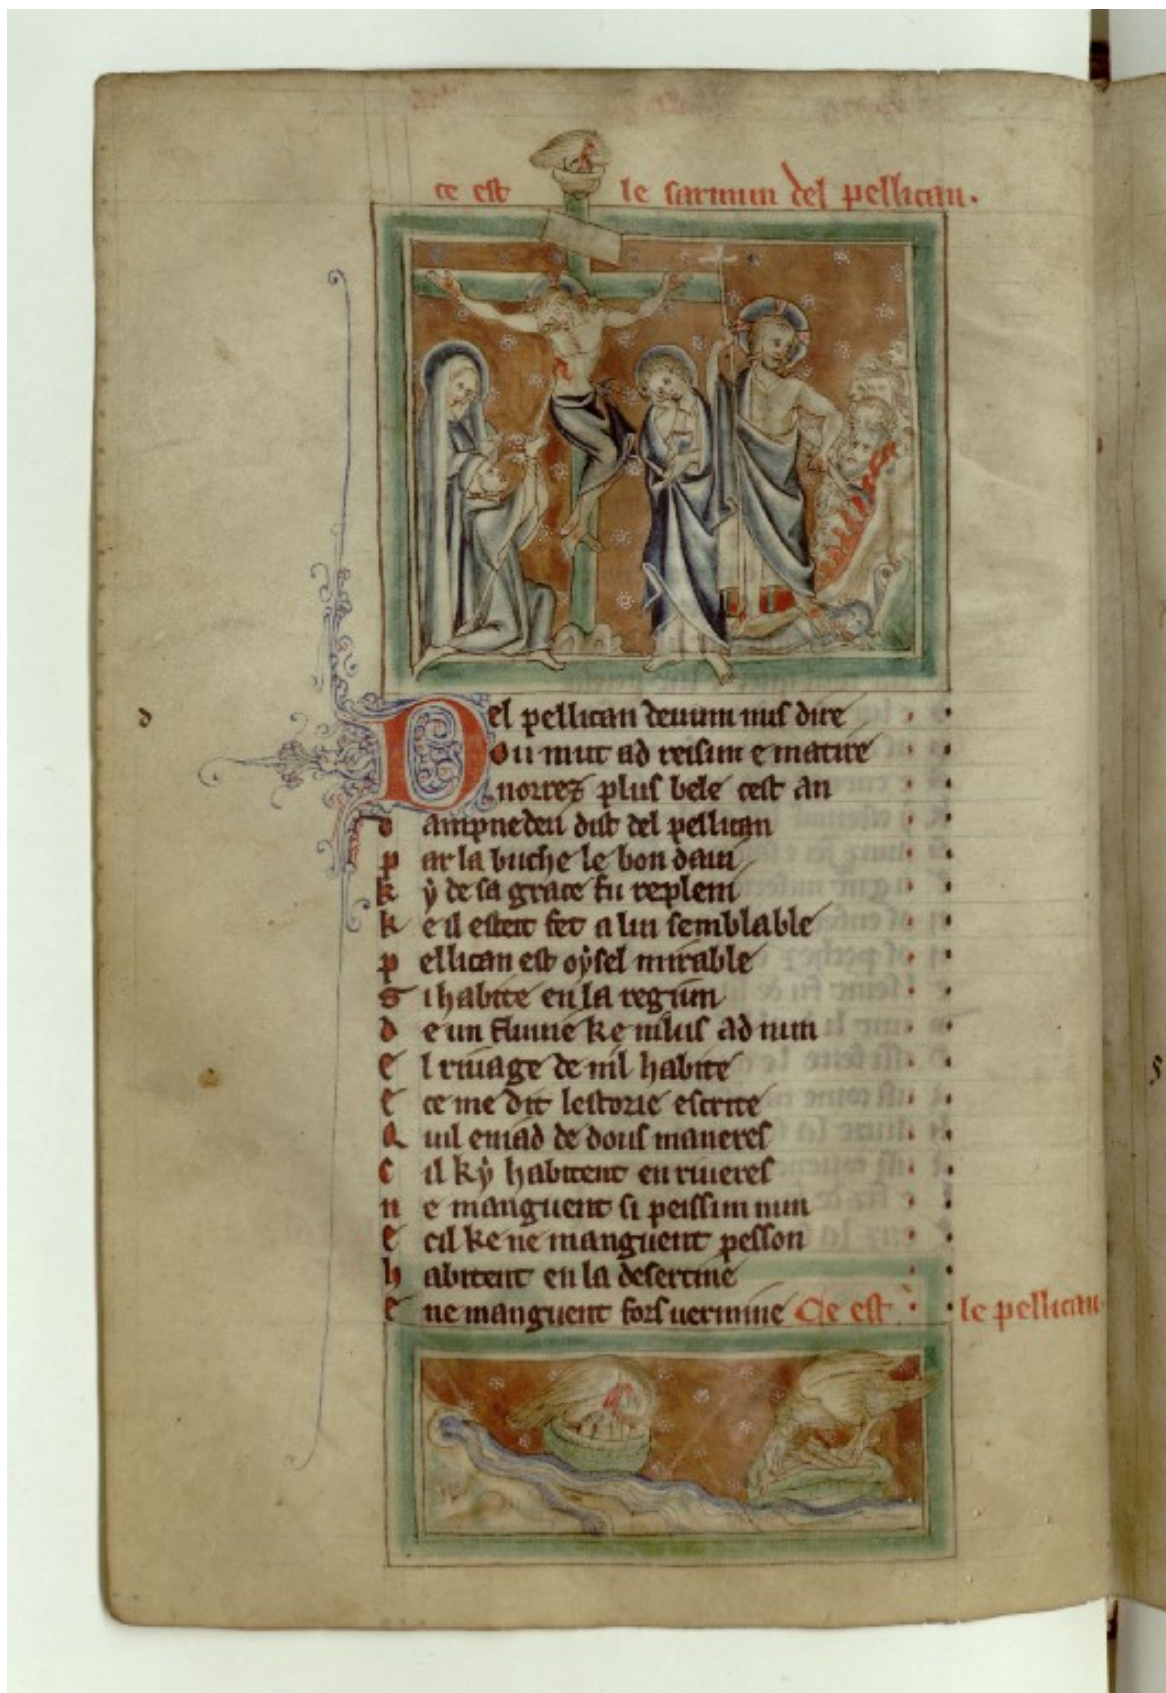 ce est le sarmun del pellican.
d
Del pellican deuum nus dire
Dou mut ad reisun e matire
norrez plus bele cest an
d ampnedeu dist del pellican
p ar la buche le bon daui
k ẏ de sa grace fu repleni
k e il esteit fet a lui semblable
p ellican est oẏsel mirable
s i habite en la regiun
d e un fluuie ke nilus ad nun
e l riuage de nil habite
e ce me dit lestorie escrite
Q uil eniad de dous maneres
c il kẏ habitent en riueres
n e manguent si peissun nun
e cil ke ne manguent pesson
h abitent en la desertine
e ne manguent fors uermine Ce est le pellican.